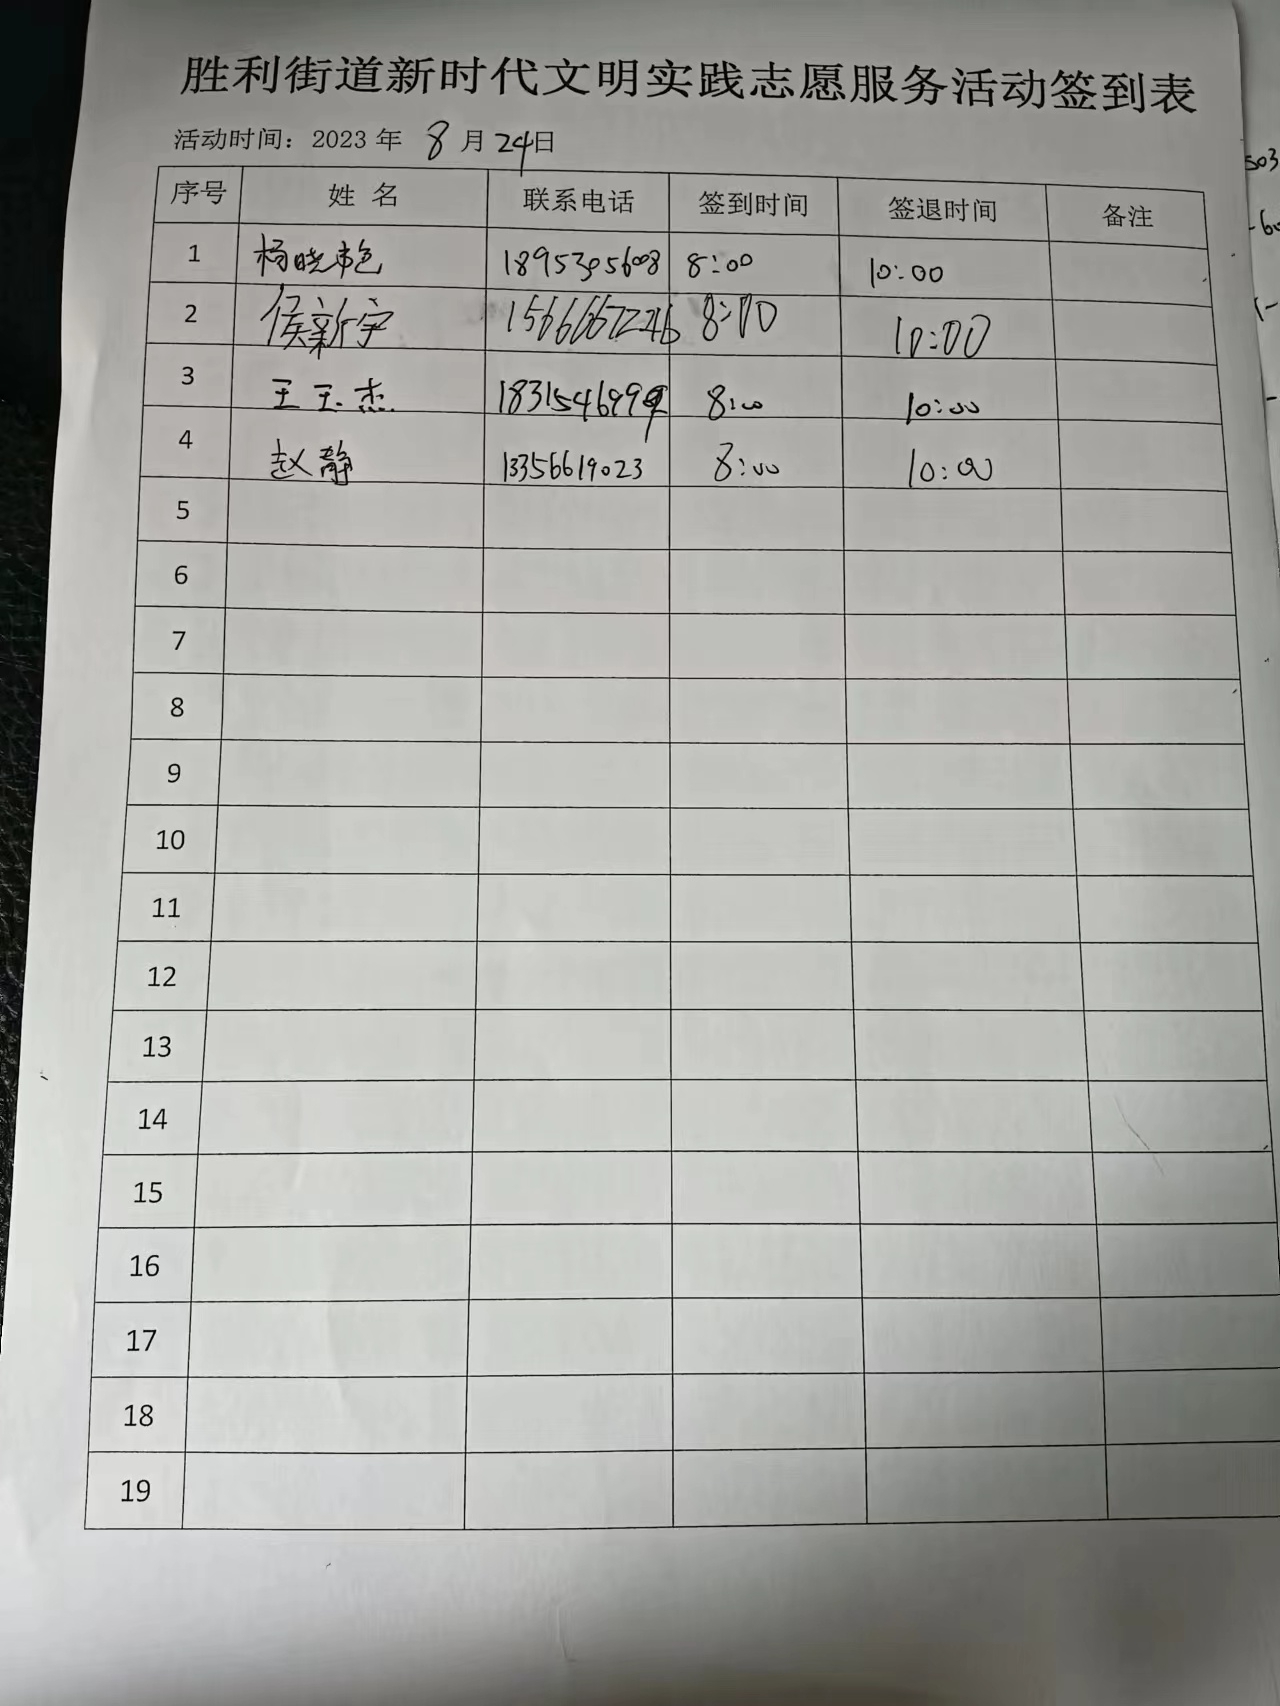 胜利街道新时代文明实践志愿服务活动签到表
活动时间：2023 年 8 月 24日
序号 姓 名 联系电话 签到时间 签退时间 备注
1 杨晓艳 1895305608 8:00 10:00
2 侯新宇 15666672246 8:00 10:00
3 王玉杰 8:00 10:00
4 赵静 13356619023 8:00 10:00
5
6
7
8
9
10
11
12
13
14
15
16
17
18
19
503